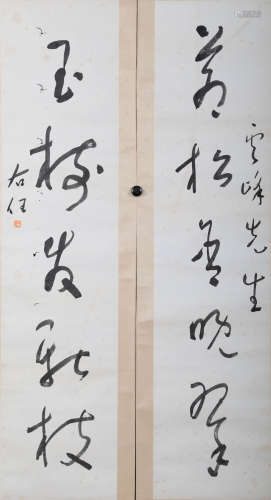 雲峰先生
松晚翠
玉樹發新枝
右任